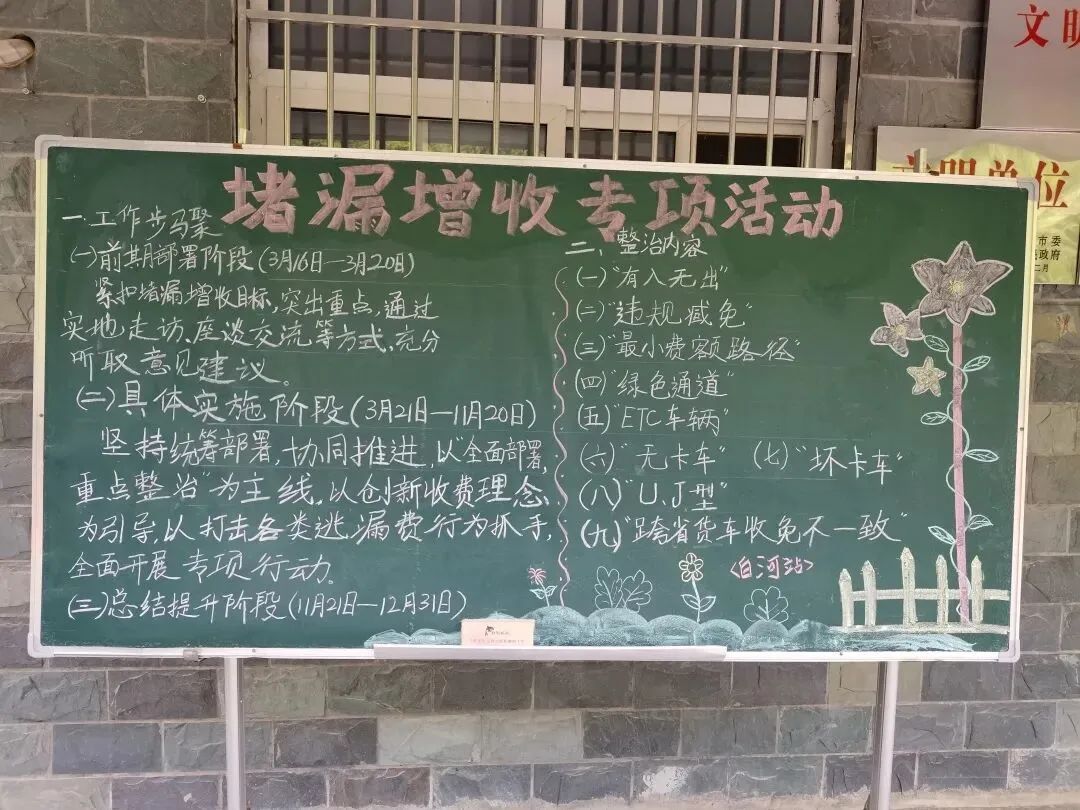 堵漏增收专项活动
一.工作步骤
(一)前期部署阶段(3月16日—3月20日)
紧扣堵漏增收目标,突出重点,通过
实地走访、座谈交流等方式,充分
听取意见建议。
(二)具体实施阶段(3月21日—11月20日)
坚持统筹部署,协同推进,以"全面部署,
重点整治"为主线,以创新收费理念
为引导,以打击各类逃漏费行为抓手,
全面开展专项行动。
(三)总结提升阶段(11月21日—12月31日)
二、整治内容
(一)"有入无出"
(二)"违规减免"
(三)"最小费额路径"
(四)"绿色通道"
(五)"ETC车辆"
(六)"无卡车" (七)"坏卡车"
(八)"U.J型"
(九)"跨省货车收免不一致"
<白河站>
文明
文明单位
市委
政府
二月